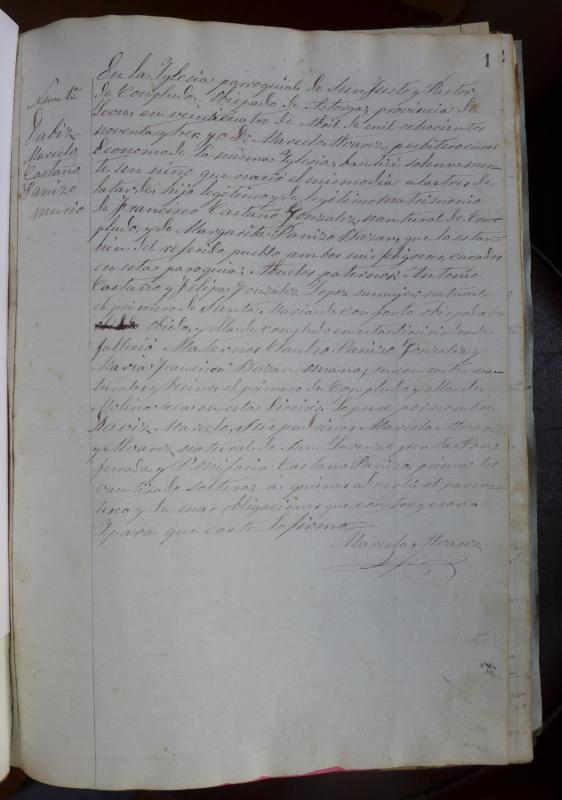 1
Num 1º
Dabiz
Marcelo
Castaño
Panizo
murio
En la Yglesia parroquial de San Justo y Pastor
de Compludo Obispado de Astorga, provincia de
Leon, en veinticuatro de Abril de mil ochocientos
noventa y tres: yo Dn Marcelo Alvarez, presbitero cura
Economo de la misma Yglesia, bauticé solennemen
te un niño que nació el mismo dia a las tres de
la tarde: hijo legitimo y de legitimo matrimonio
de Francisco Castaño Gonzalez, natural de Com
pludo, y de Margarita Panizo Bazan, que lo es tam
bien del referido pueblo, ambos mis feligreses, casados
en esta paroquia: Abuelos paternos: Antonio
Castaño y Felipa Gonzalez Lopez su mujer, natural
el primero de Santa Maria de Conforto obispado de
obiedo, y ella de Compludo en donde
falleció Maternos Claudio Panizo Gonzalez y
Maria Francisca Bazan su consorte na
turales y becinos el primero de Compludo y ella de
Molina seca en esta Diocesis. Le puse por nombre
Daviz Marcelo, Sus padrinos Marcelo Alvarez
y Alvarez, natural de San Lorenzo junta Pon
ferrada y Bonifacia Castaño Panizo, prima del
vautizado soltera: a quienes adverti el paren
tesco y de mas obligaciones que contrageron
Y para que coste lo firmo
Marcelo Alvarez